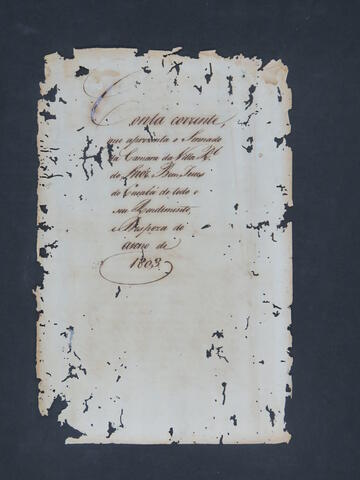 Conta corrente,
que aprezenta o Senado
da Camara da Villa Rl
do Snr Bom Jesus
do Cuyabá de todo o
seu Rendimento,
e Despeza do
anno de
1803.